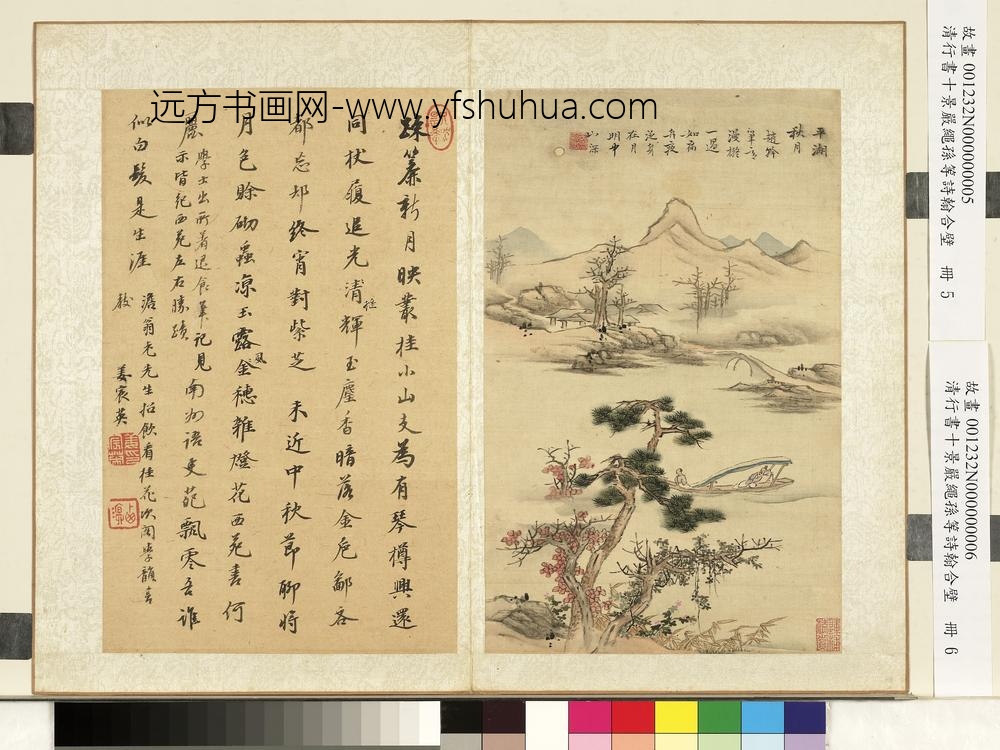 远方书画网-www.yfshuhua.com
平湖
秋月
趙吟
筆意
漫擬
一過
如病
在月
明中
珠簾新月映叢桂小山支為有琴樽興還
同杖履追光清輝玉麈香暗落金卮鄙吝
都忘却終宵對紫芝 未近中秋節聊將
月色賒砌蟲涼玉露金穗雜燈花西苑書何
學士出所著退食筆記見
示皆紀西苑左右勝蹟
南州語更苑飄零吾誰
似白髮是生涯
澹翁老先生招飲看桂花次閣學韻請
教
姜宸英
故畫 001232N000000005
清行書十景嚴繩孫等詩翰合璧 冊 5
故畫 001232N000000006
清行書十景嚴繩孫等詩翰合璧 冊 6